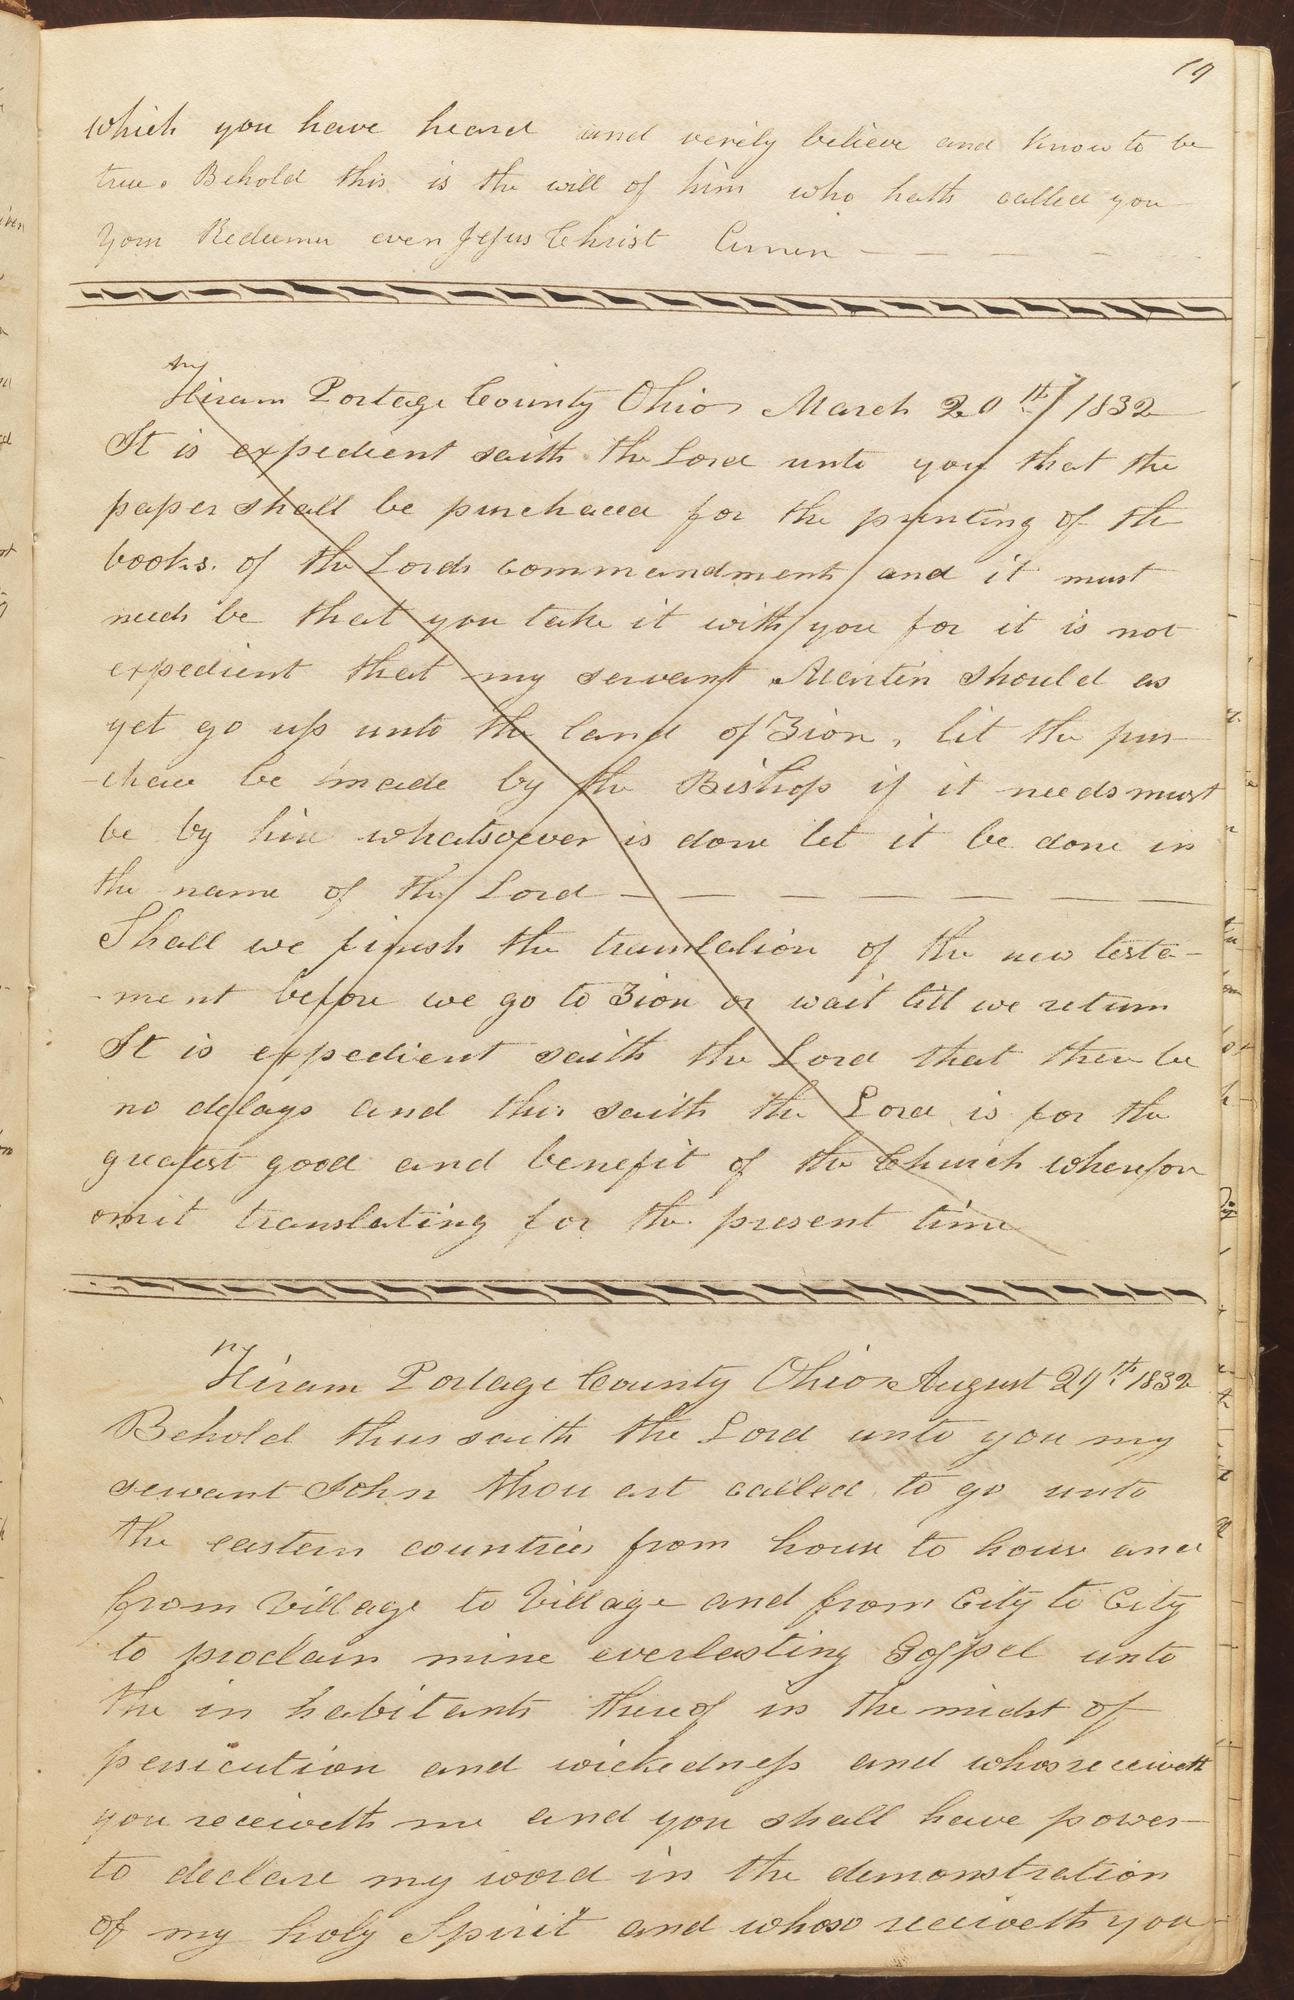 19
which you have heard and verily believe and know to be
true. Behold this is the will of him who hath called you
your Redeemer even Jesus Christ Amen — — — —
Hiram Portage County Ohio March 20th 1832
It is expedient saith the Lord unto you that the
paper shall be purchased for the printing of the
books. of the Lords commandments and it must
needs be that you take it with you for it is not
expedient that my servant Martin should as
yet go up unto the land of Zion, let the pur-
-chase be made by the Bishop if it needs must
be by him whatsoever is done let it be done in
the name of the Lord — — — — — — —
Shall we finish the translation of the new testa-
-ment before we go to Zion or wait till we return
It is expedient saith the Lord that there be
no delays and this saith the Lord is for the
greatest good and benefit of the Church wherefore
omit translating for the present time
Hiram Portage County Ohio August 29th. 1832
Behold thus saith the Lord unto you my
servant John thou art called to go unto
the eastern countries from house to house and
from Village to Village and from City to City
to proclaim mine everlasting Gospel unto
the in habitants thereof in the midst of
persicution and wickedness and whoso receiveth
you receiveth me and you shall have power
to declare my word in the demonstration
of my holy Spirit and whoso receiveth you